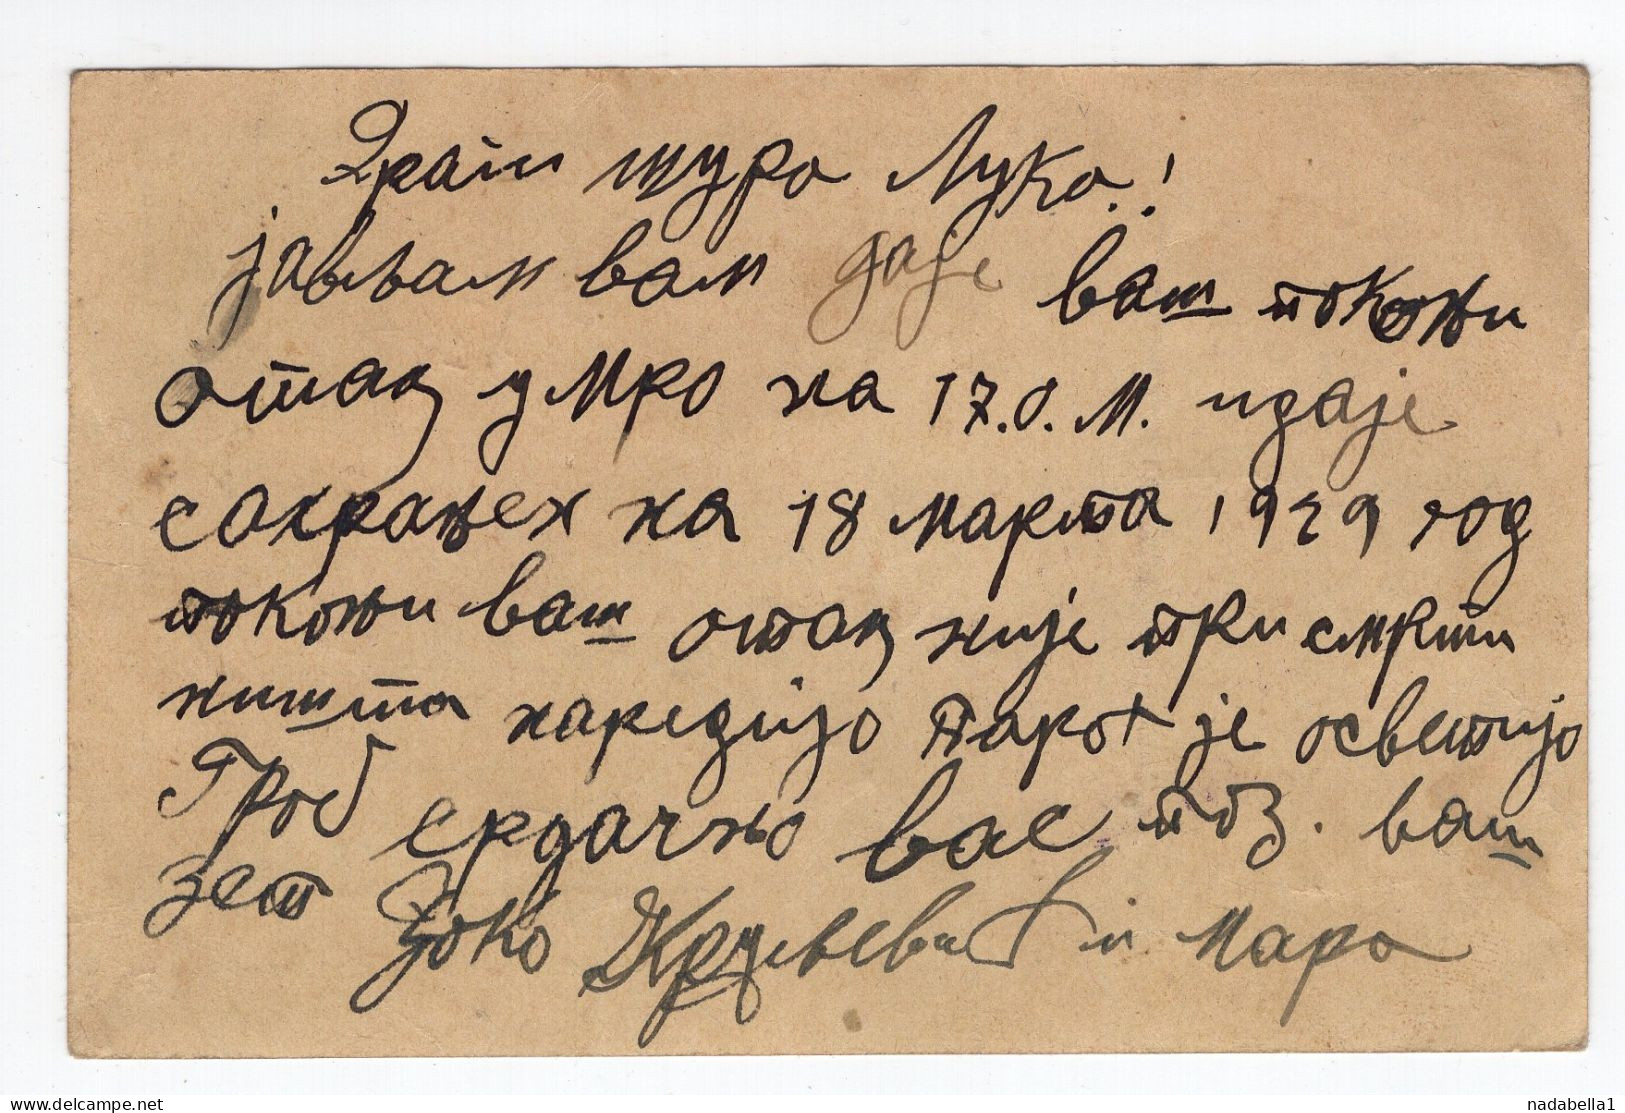 Драги шуро Лука!
јављам вам даје ваш покоњи
отац умро на 17.О.М. идаје
сахрањен на 18 марта 1929 год
покоњи ваш отац није при смрти
ништа наредијо Парох је осветијо
Гроб срдачно вас поз. ваш
зет Ђоко и Мара
nadabella1